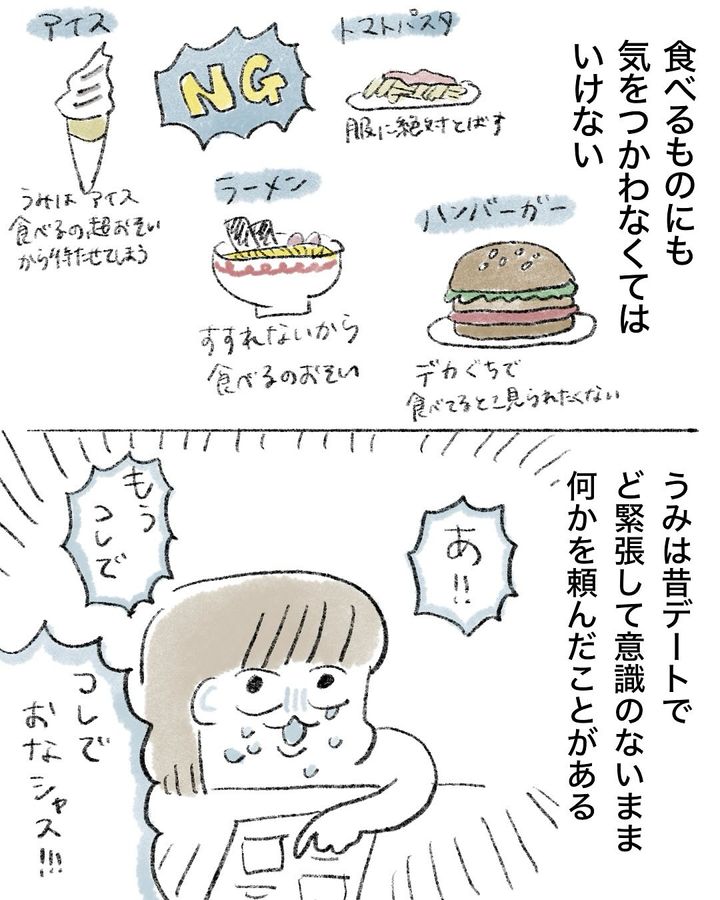 食べるものにも
気をつかわなくては
いけない
トマトパスタ
服に絶対とばす
NG
アイス
うみは アイス
食べるの超おそい
から待たせてしまう
ハンバーガー
デカぐちで
食べてるとこ見られたくない
ラーメン
すすれないから
食べるのおそい
うみは昔デートで
ど緊張して意識のないまま
何かを頼んだことがある
あ!!
もう
コレで
コレで
おなシャス!!!